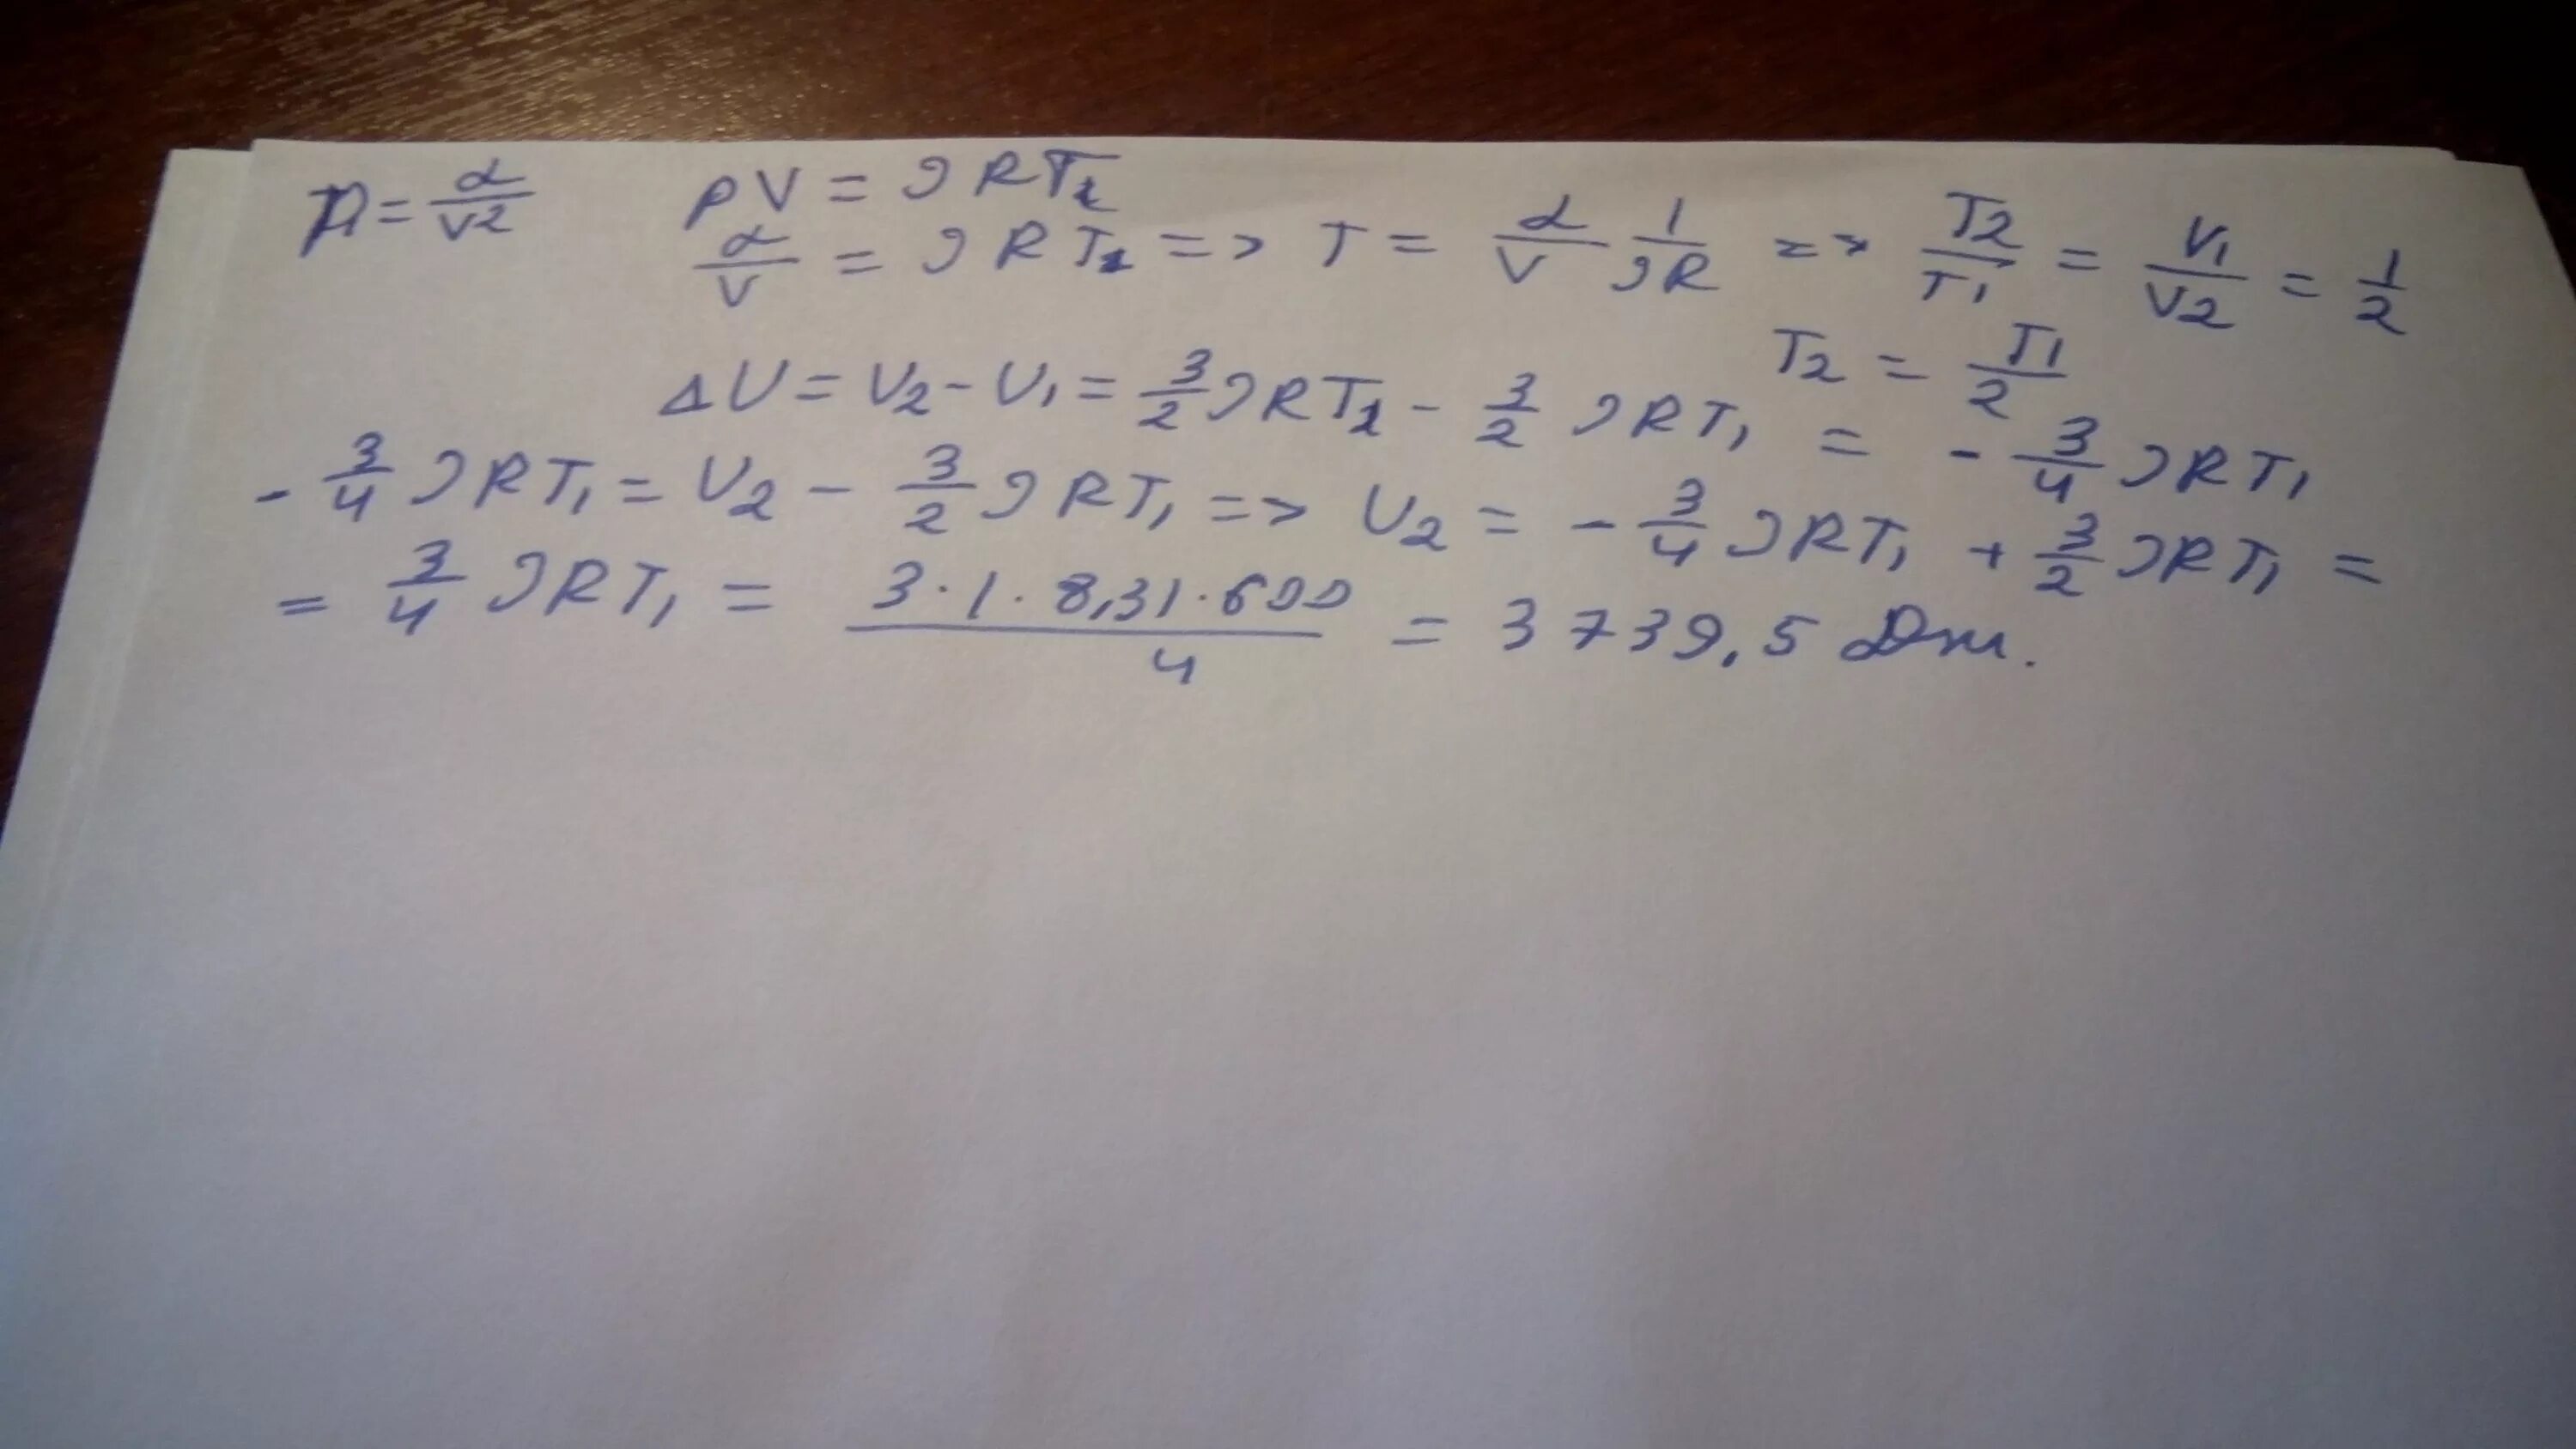 p = α/V² pV = νRT₂
α/V = νRT₂ => T = α/V 1/νR => T₂/T₁ = V₁/V₂ = 1/2
T₂ = T₁/2
ΔU = U₂ - U₁ = 3/2 νRT₂ - 3/2 νRT₁ = - 3/4 νRT₁
- 3/4 νRT₁ = U₂ - 3/2 νRT₁ => U₂ = - 3/4 νRT₁ + 3/2 νRT₁ =
= 3/4 νRT₁ = 3·1·8,31·600/4 = 3739,5 Дж.